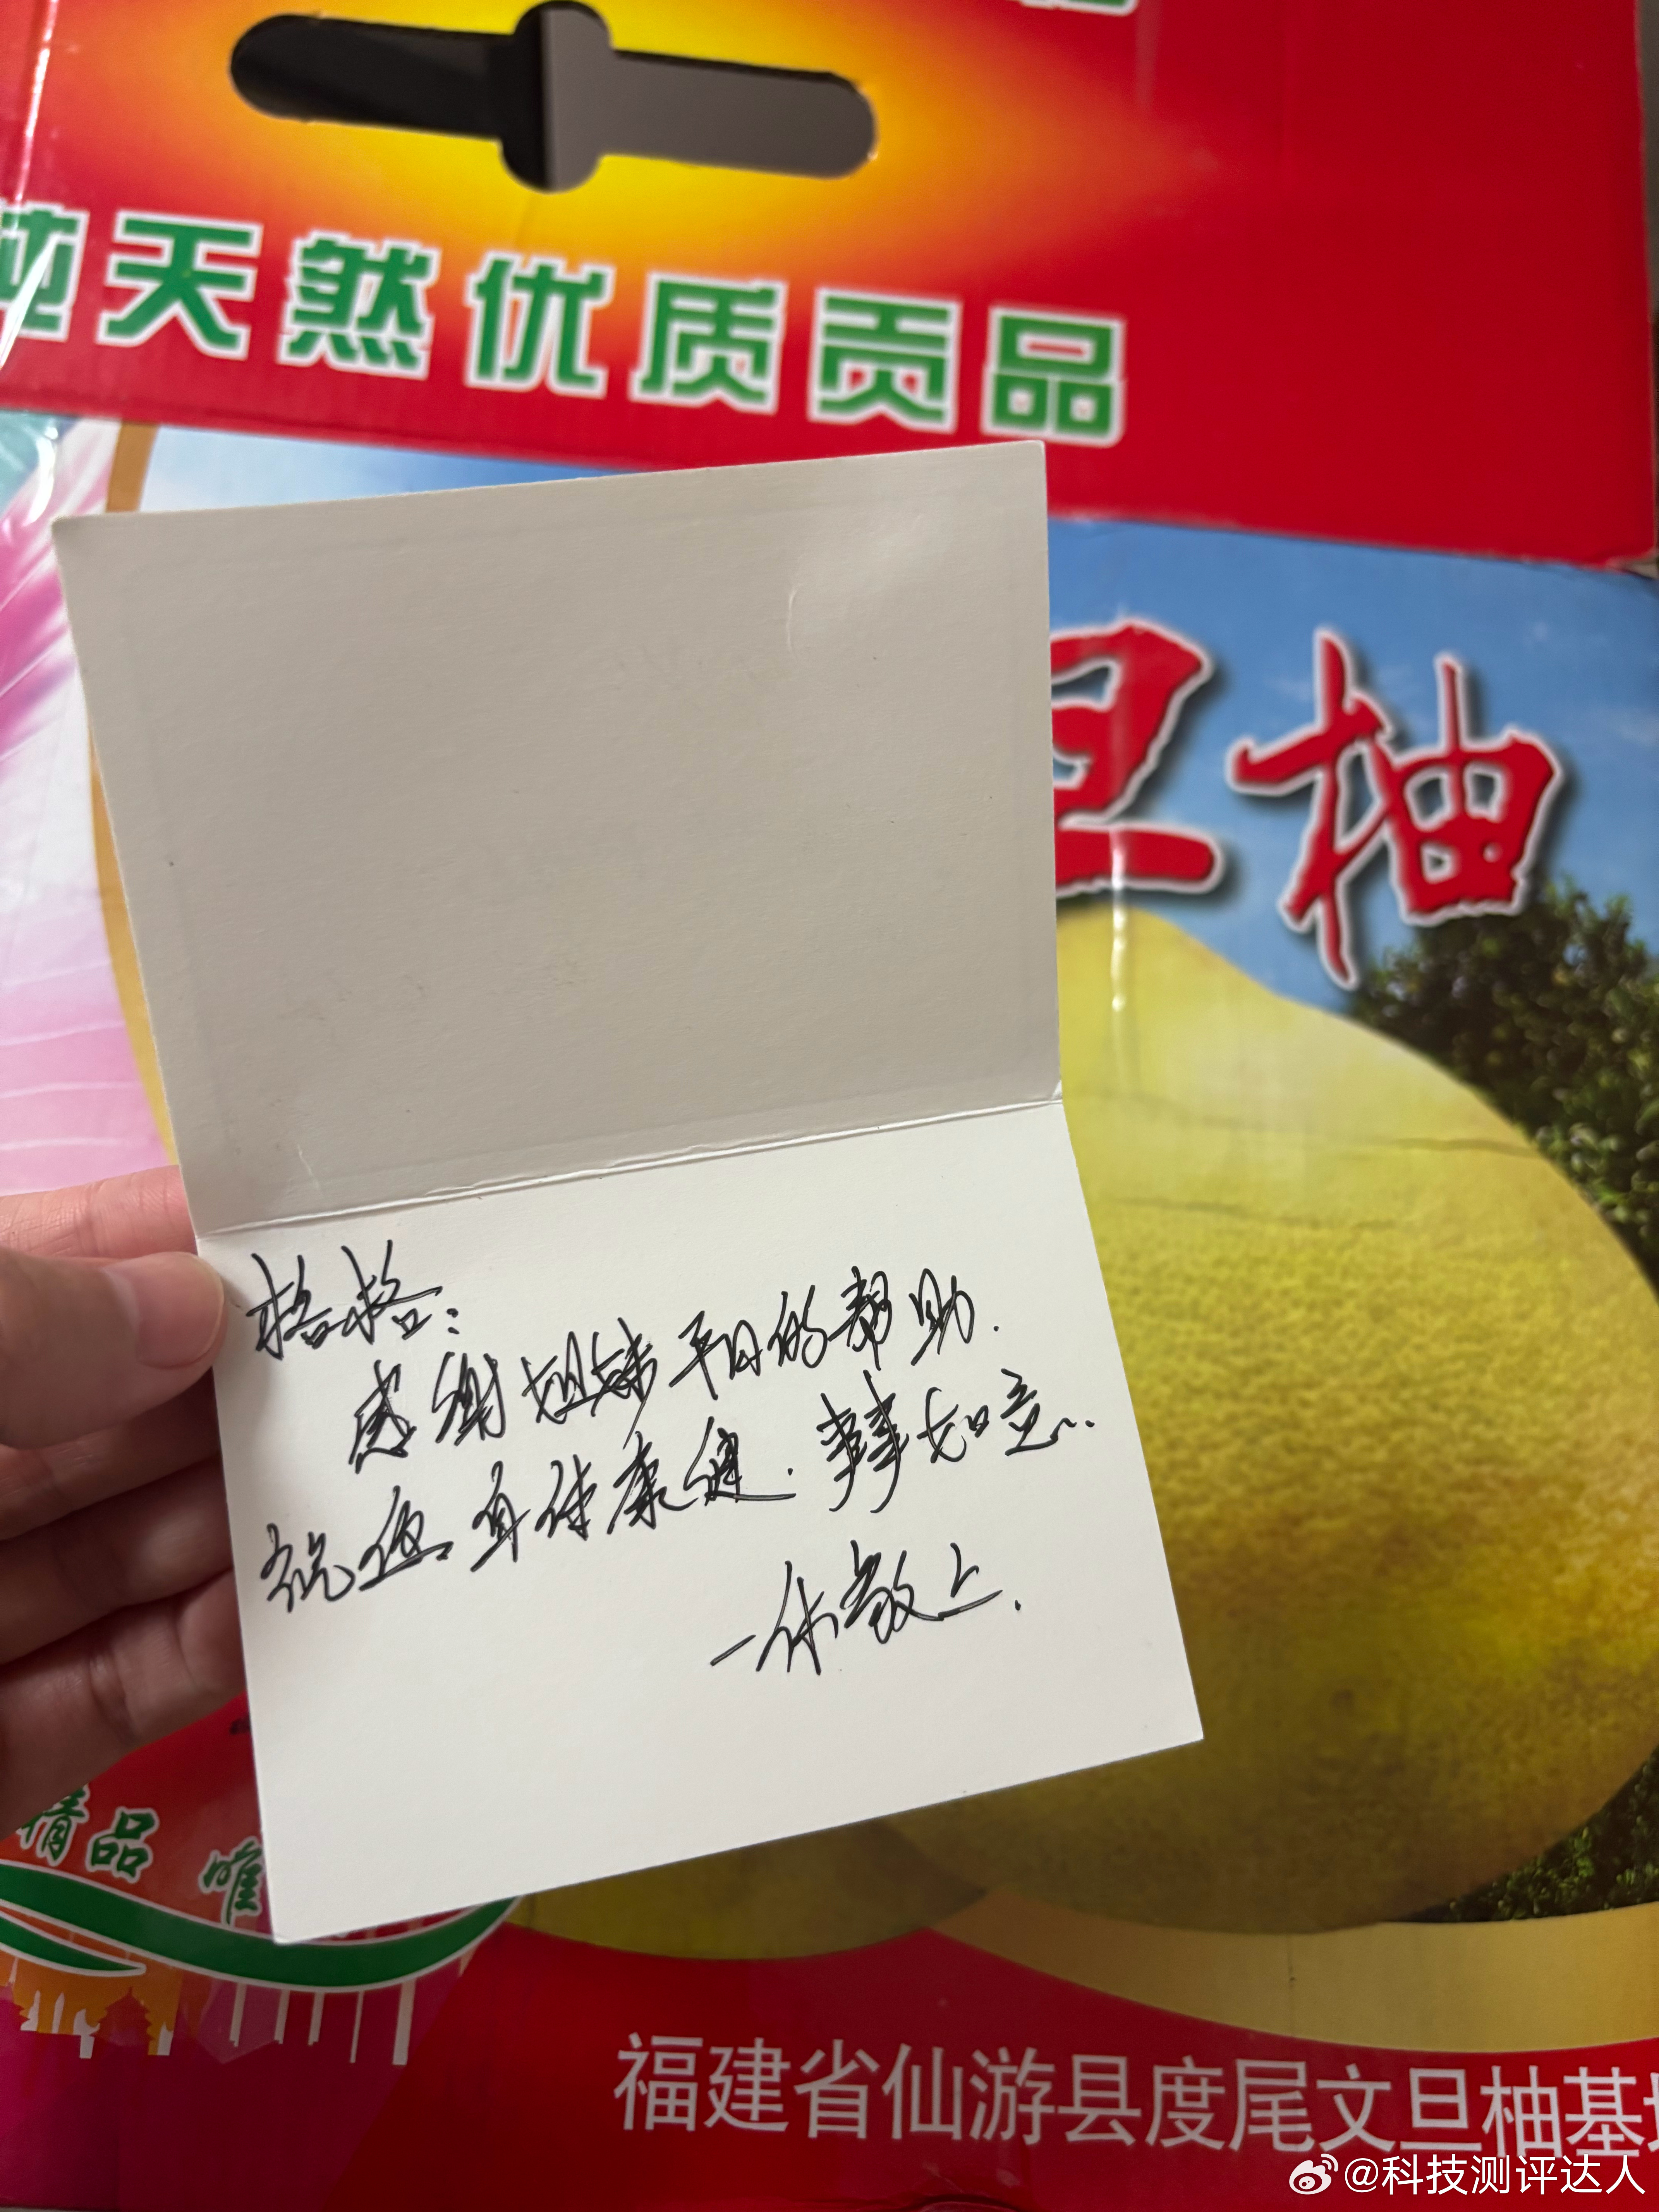 纯天然优质贡品
旦柚
格格：
感谢姐妹平日的帮助.
祝您身体康健.事事如意..
一休敬上.
精品 唯
福建省仙游县度尾文旦柚基
@科技测评达人